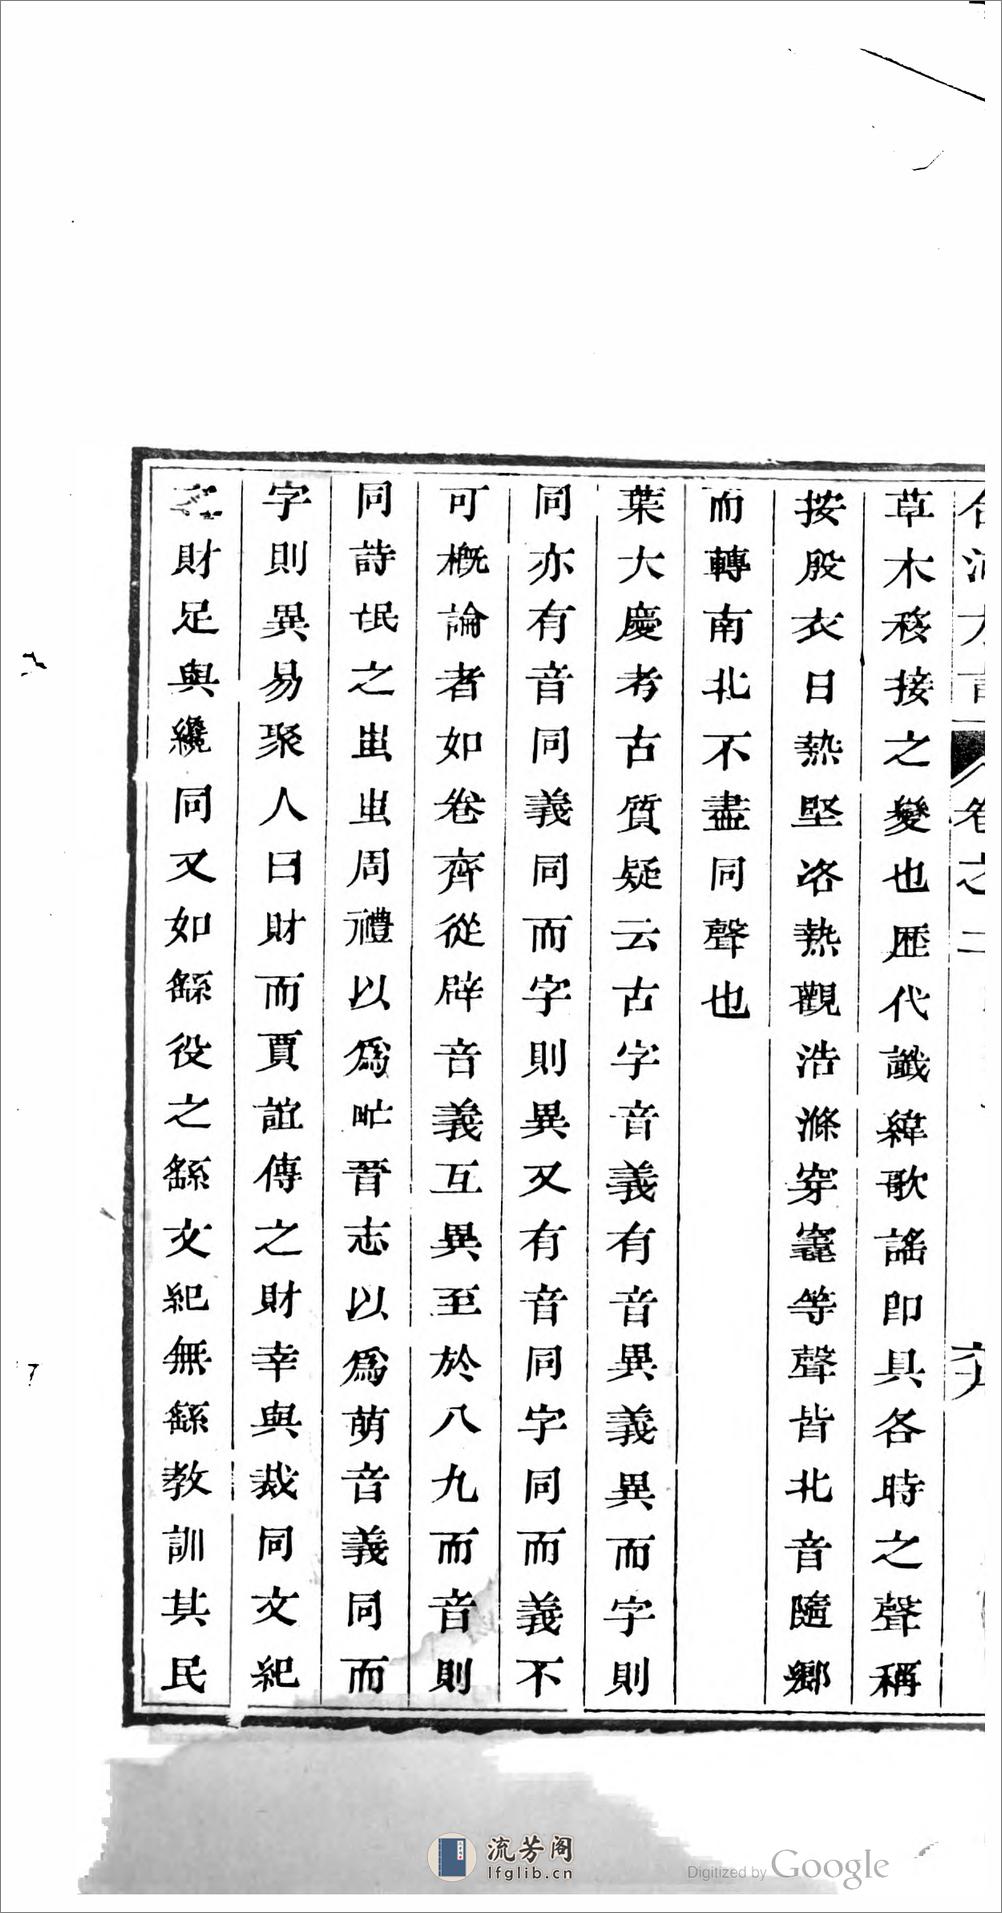 卷之二
草木稼接之變也歷代讖緯歌謠即具各時之聲稱
按殷衣日熱堅洛熱觀浩滌穿竈等聲皆北音隨鄉
而轉南北不盡同聲也
葉大慶考古質疑云古字音義有音異義異而字則
同亦有音同義同而字則異又有音同字同而義不
可槪論者如卷齊從辟音義互異至於八九而音則
同詩氓之蚩蚩周禮以爲甿晉志以爲萌音義同而
字則異易聚人曰財而賈誼傳之財幸與裁同文紀
財足與纔同又如繇役之繇文紀無繇教訓其民
流芳阁
lfglib.cn
Digitized by Google